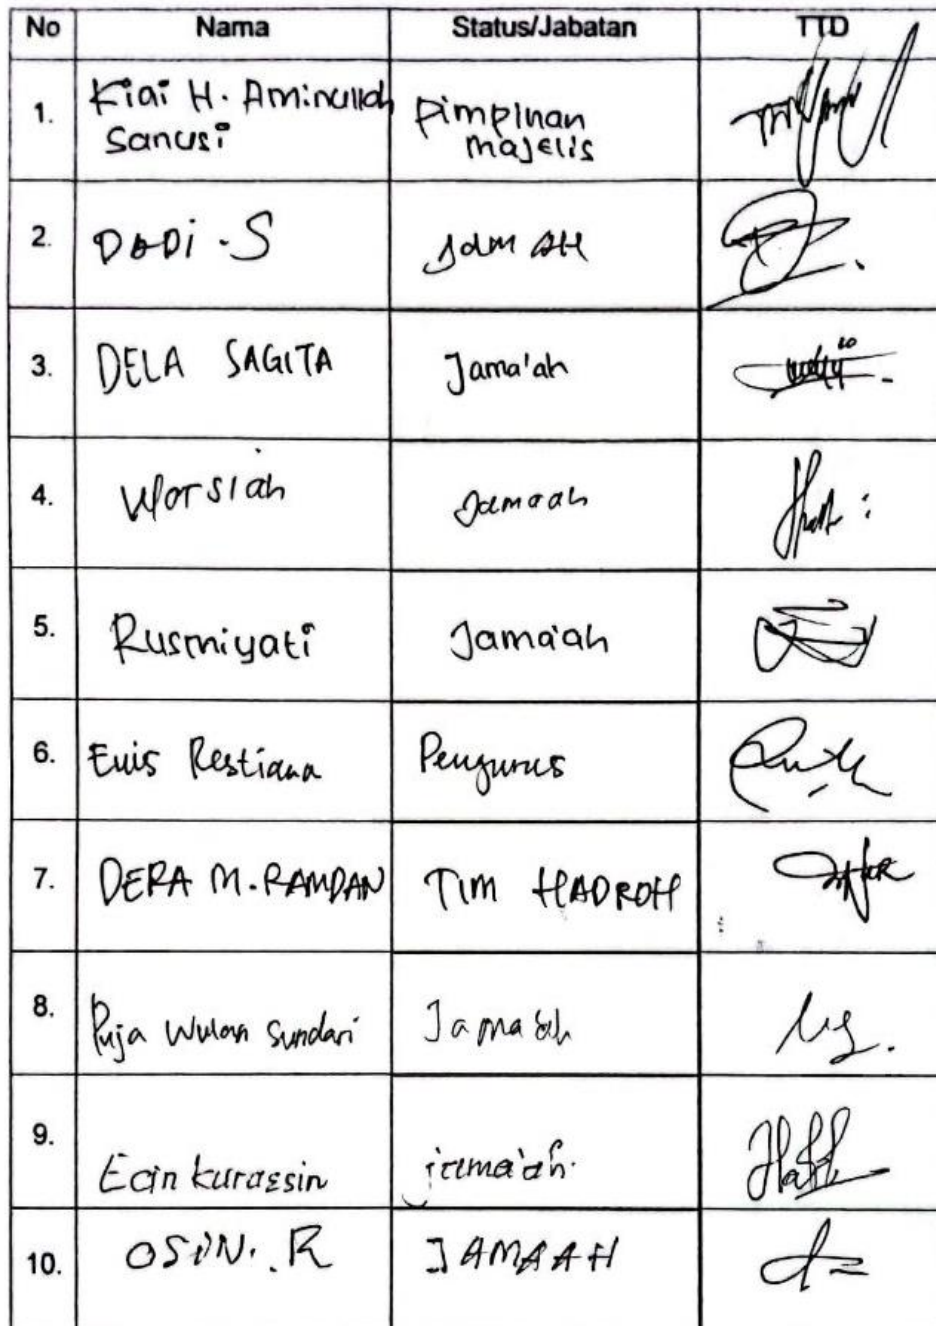 No Nama Status/Jabatan TTD
1. Kiai H. Aminullah Sanusi Pimpinan Majelis
2. DODi . S Jam AH
3. DELA SAGITA Jama'ah
4. Warsiah Jamaah
5. Rusmiyati Jama'ah
6. Euis Restiana Pengurus
7. DERA M. RAMDAN TIM HADROH
8. Puja Wulan Sundari Jama'ah
9. jama'ah.
10. OSIN. R JAMAAH